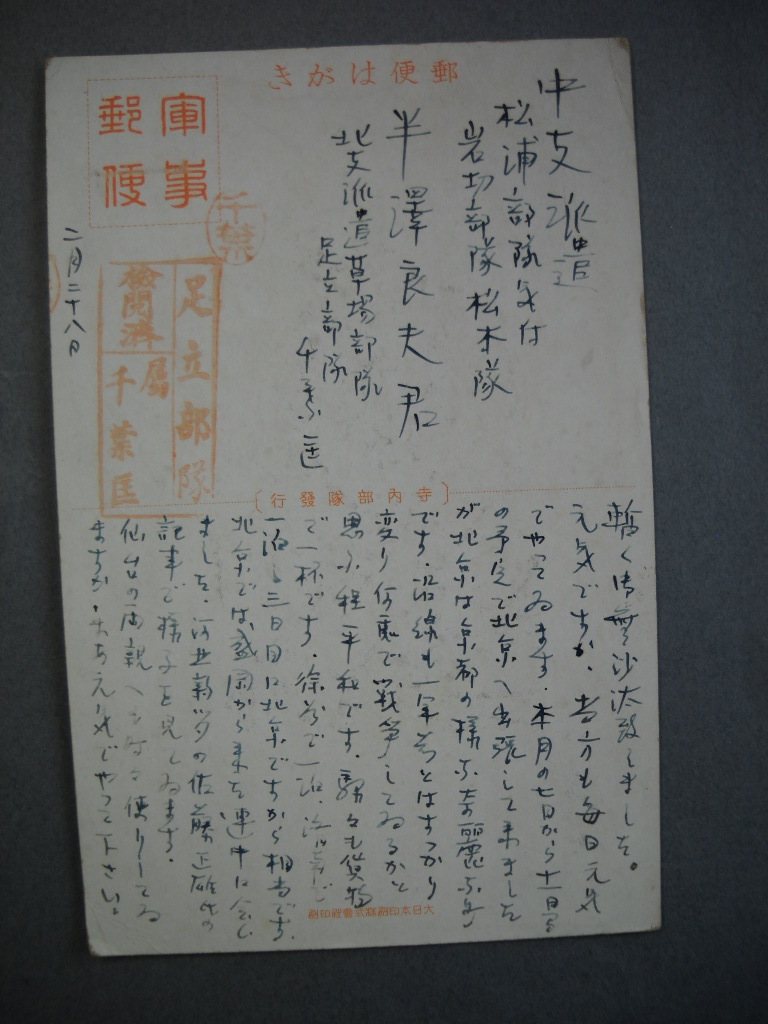 郵便はがき
軍事
郵便
中支派遣
松浦部隊気付
岩切部隊松本隊
半澤良夫君
北支派遣草場部隊
足立部隊
千葉匡
千葉
足立部隊
検閲済
属
千葉匡
二月二十八日
寺内部隊發行
暫く御無沙汰致しました。
元気ですか、当方も毎日元気
でやってゐます。本月の七日から十一日迄
の予定で北京へ出張して来ました
が北京は京都の様な奇麗な町
です。沿線も一年前とはすっかり
変り何処で戦争してゐるかと
思ふ程平和です。駅々も貨物
で一杯です。徐州で一泊、済南で
一泊し三日目に北京ですから相当です。
北京では盛岡から来た連中に会ひ
ました。河北新報の佐藤正雄氏の
記事で様子を見てゐます。
仙台の両親へは時々便りしてゐ
ますか、まあ元気でやって下さい。
大日本印刷株式會社印刷